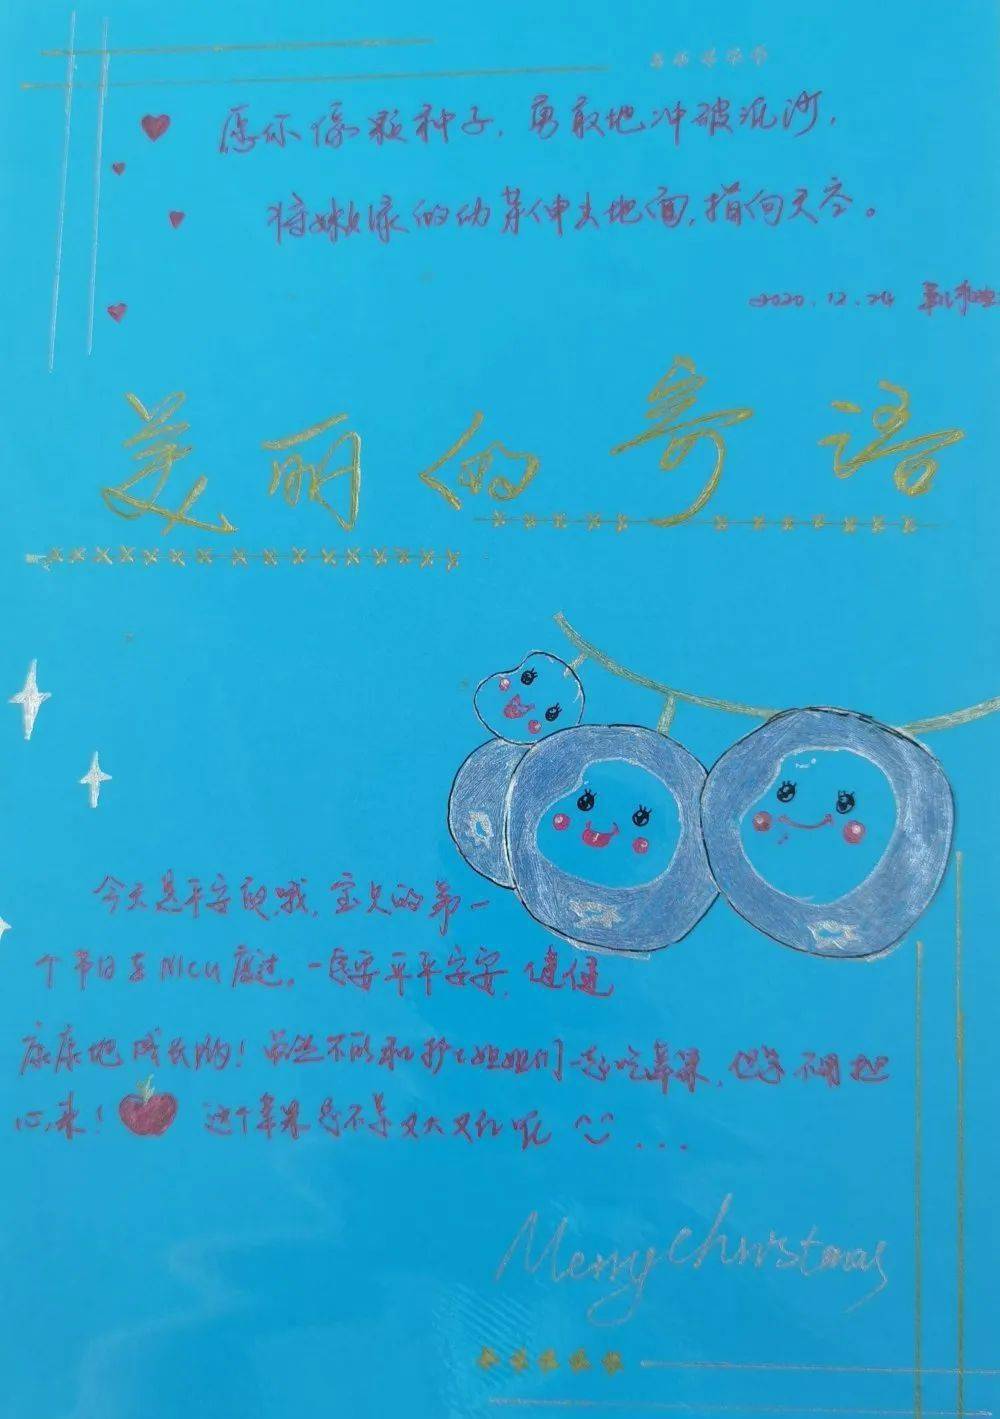 愿你像颗种子，勇敢地冲破泥沙，
将嫩绿的幼芽伸出地面，指向天空。
2020.12.24
美丽的寄语
今天是平安夜哦，宝贝的第一
个节日在NICU度过，一定要平平安安，健健
康康地成长哟！虽然不能和护士姐姐们一起吃苹果，也要不用担
心，来！这个苹果是不是又大又红呢
Merry Christmas